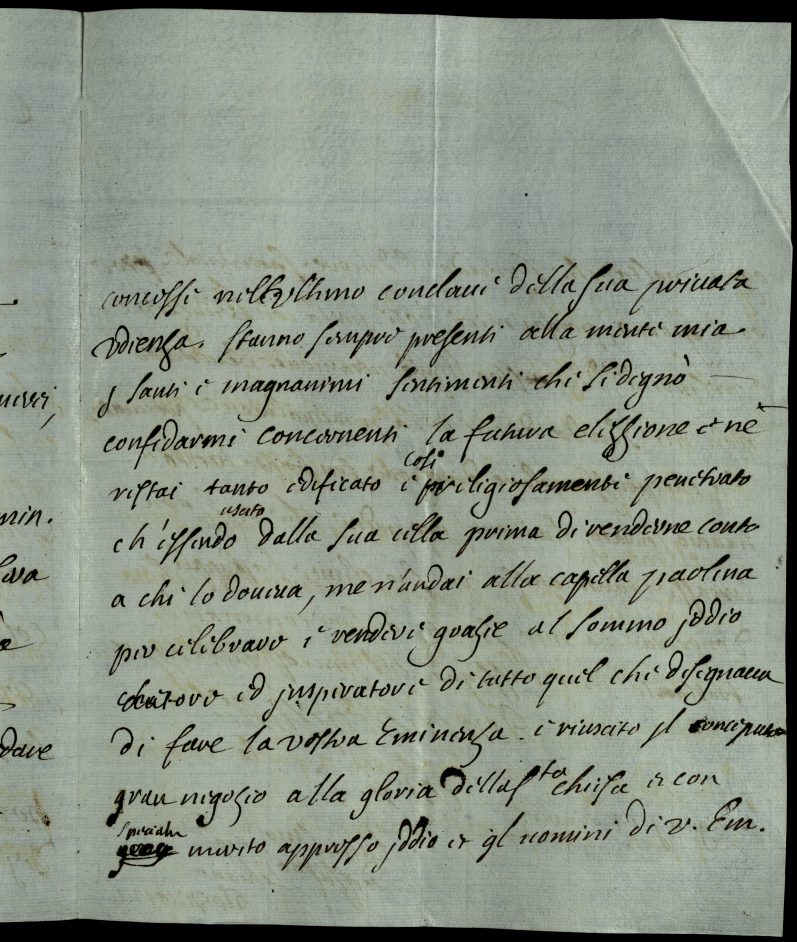 concesse nell'ultimo conclave della sua privata
vdienza. stanno sempre presenti alla mente mia
j santi e magnanimi sentimenti che si degnò
confidarmi concernenti la futura elezzione e ne
restai tanto edificato e così religiosamente penetrato
ch'essendo usato dalla sua cella prima di renderne conto
a chi lo doueua, me n'andai alla capella paolina
per celebrare e rendere grazie al sommo jddio
ed jnspiratore di tutto quel che disegnaua
di fare la vostra Eminenza. è riuscito jl
gran negozio alla gloria della sta chiesa et con
merito appresso jddio et gl uomini di v. Em.
nin.
dare